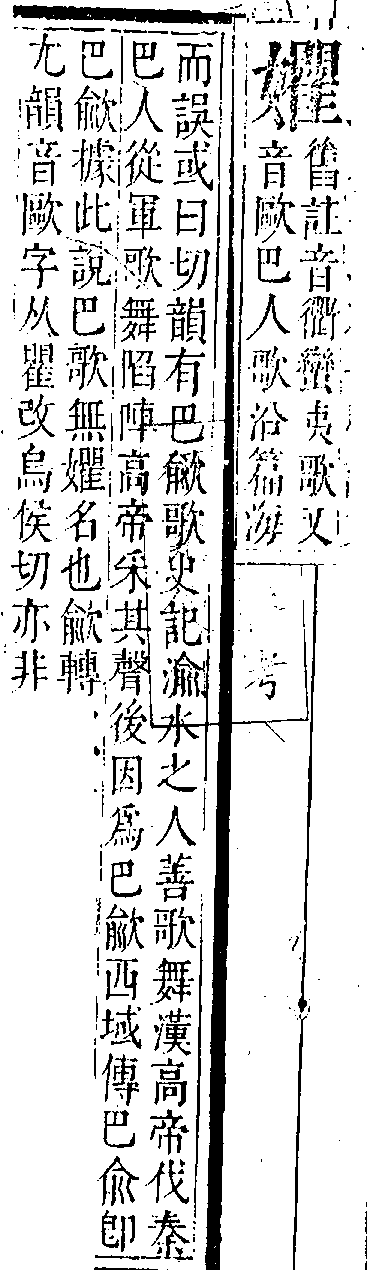 㜹
舊註音衢蠻夷歌又
音歐巴人歌沿篇海
考
而誤或曰切韻有巴歈歌史記渝水之人善歌舞漢高帝伐秦
巴人從軍歌舞陷陣高帝采其聲後因爲巴歈西域傳巴俞卽
巴歈據此說巴歌無㜹名也歈轉
尤韻音歐字从瞿改烏侯切亦非